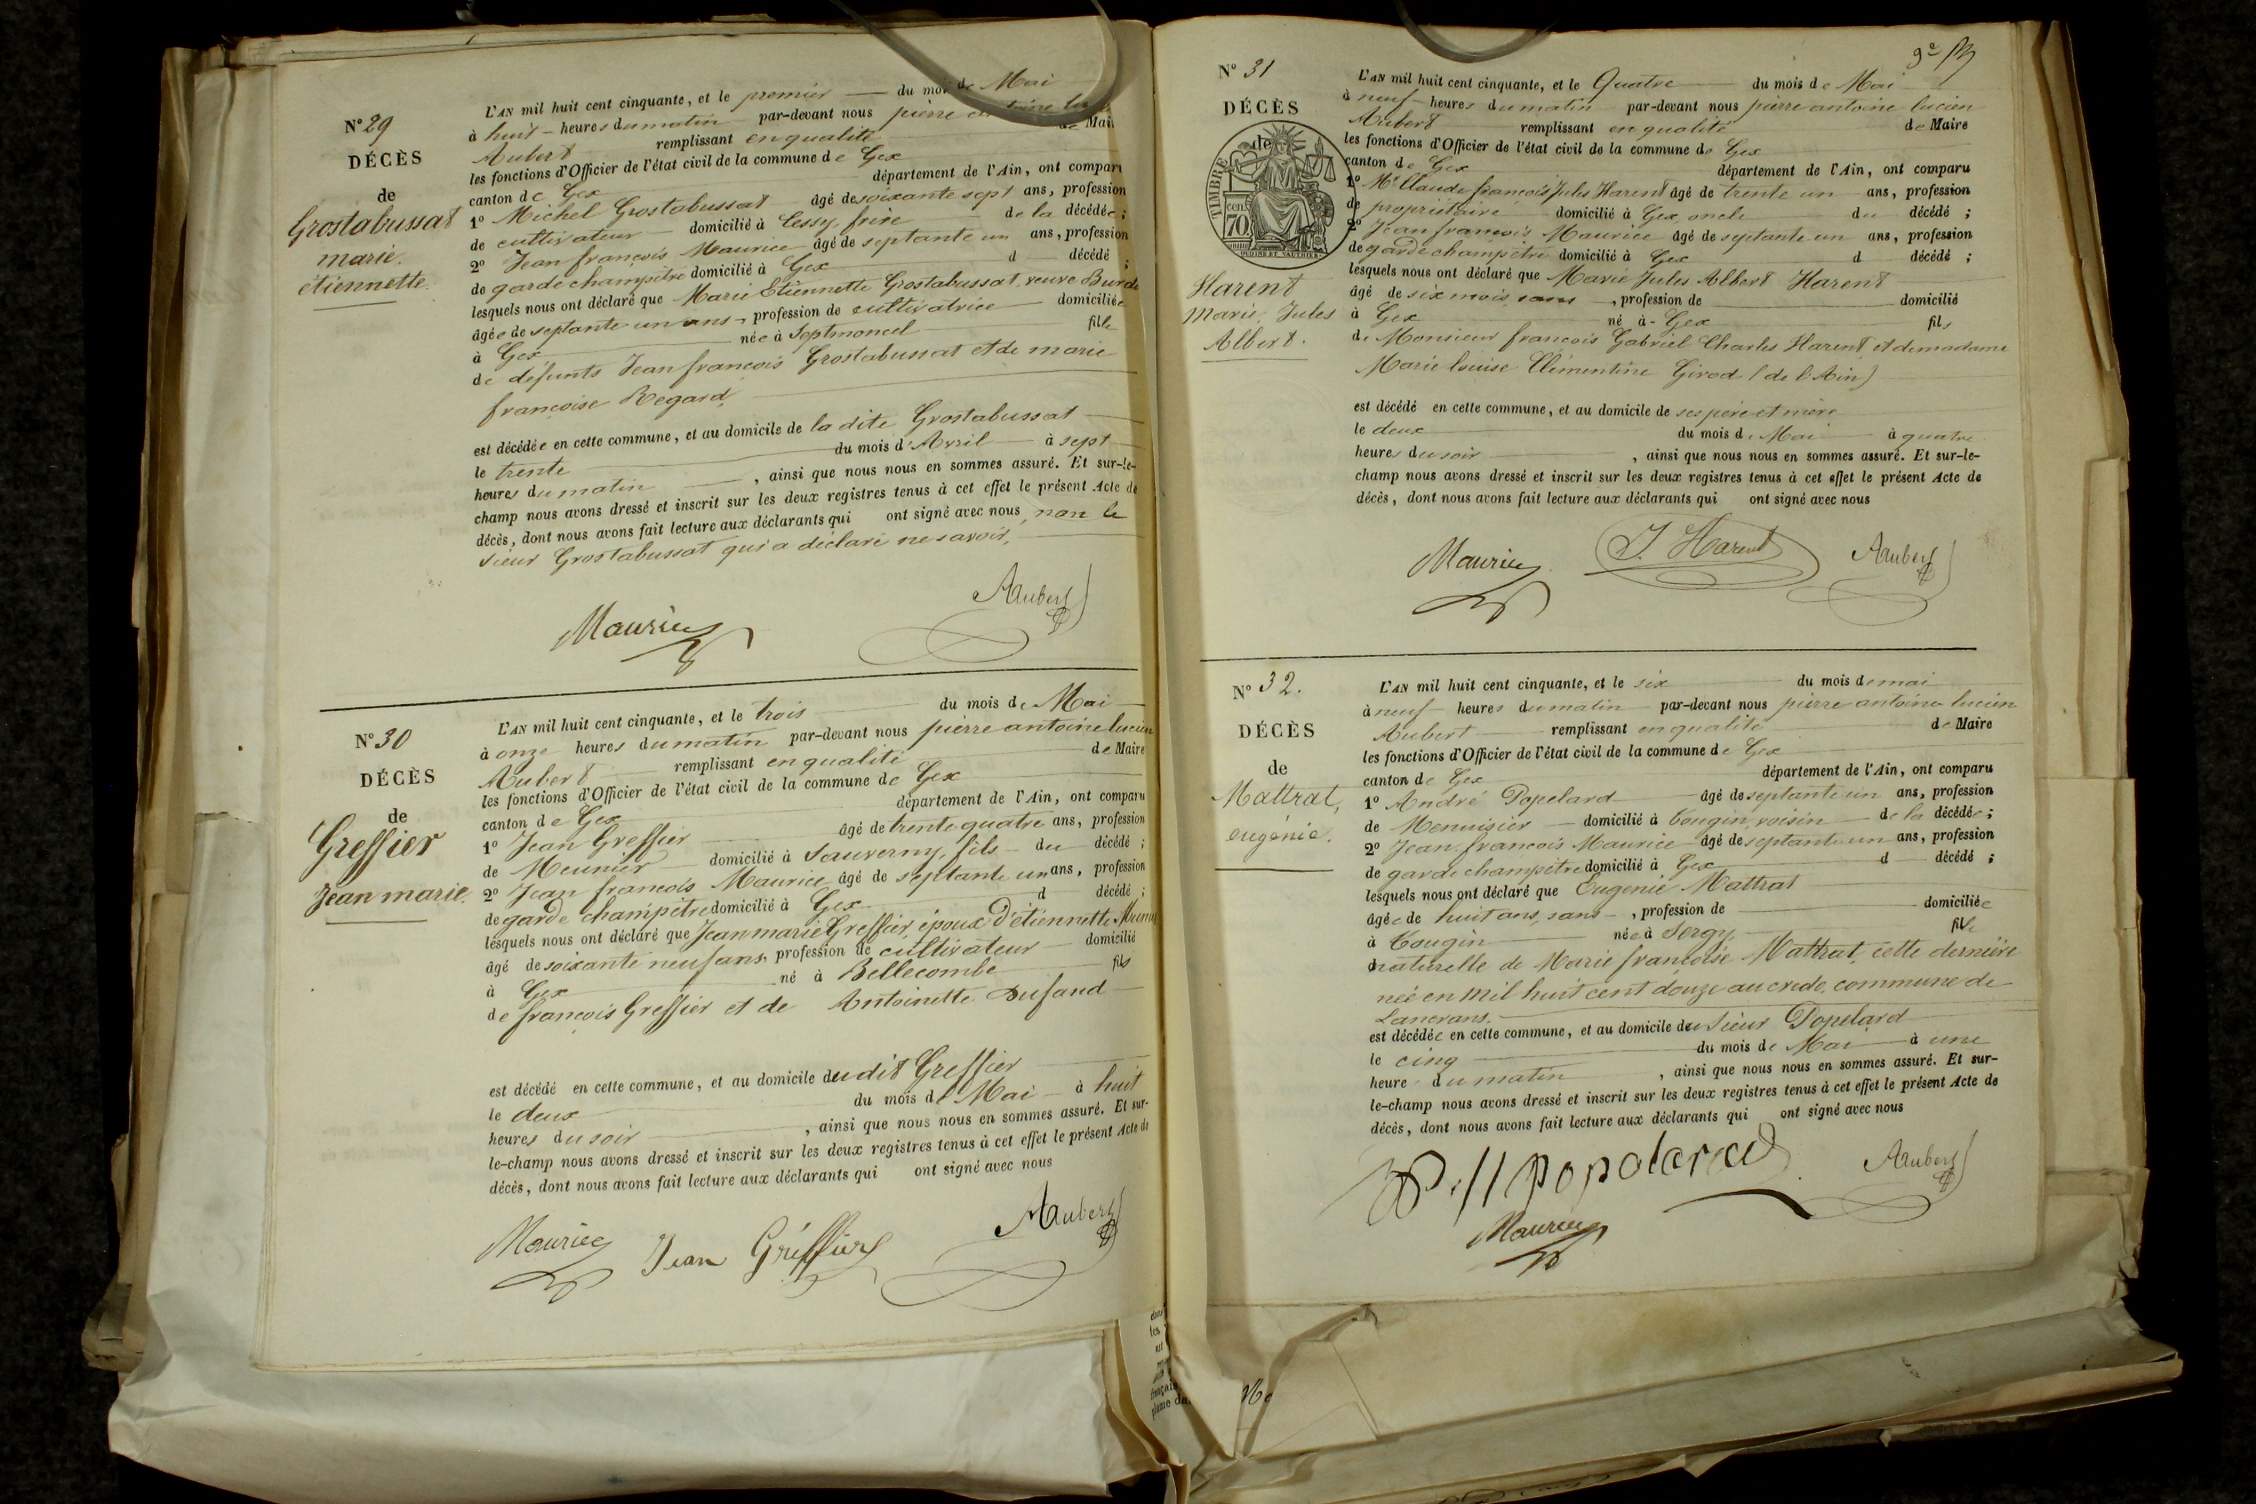 N° 29
DÉCÈS
de
Grostabussat
marie
étiennette.
L'AN mil huit cent cinquante, et le premier du mois de Mai
à huit heures du matin par-devant nous pierre antoine
Aubert remplissant en qualité de Maire
les fonctions d'Officier de l'état civil de la commune de Gex
canton de Gex département de l'Ain, ont comparu
1° Michel Grostabussat âgé de soixante sept ans, profession
de cultivateur domicilié à Cessy, frère de la décédée ;
2° Jean françois Maurice âgé de septante un ans, profession
de garde champêtre domicilié à Gex d décédé ;
lesquels nous ont déclaré que Marie Etiennette Grostabussat, veuve
âgée de septante un ans, profession de cultivatrice domiciliée
à Gex née à Septmoncel fille
de défunts Jean françois Grostabussat et de marie
françoise Regard,
est décédée en cette commune, et au domicile de la dite Grostabussat
le trente du mois d'Avril à sept
heures du matin , ainsi que nous nous en sommes assuré. Et sur-le-
champ nous avons dressé et inscrit sur les deux registres tenus à cet effet le présent Acte de
décès, dont nous avons fait lecture aux déclarants qui ont signé avec nous, non le
sieur Grostabussat qui a déclaré ne savoir,
Maurice
AAubert
N° 30
DÉCÈS
de
Greffier
Jean marie.
L'AN mil huit cent cinquante, et le trois du mois de Mai
à onze heures du matin par-devant nous pierre antoine lucien
Aubert remplissant en qualité de Maire
les fonctions d'Officier de l'état civil de la commune de Gex
canton de Gex département de l'Ain, ont comparu
1° Jean Greffier âgé de trente quatre ans, profession
de Meunier domicilié à Sauverny, fils du décédé ;
2° Jean françois Maurice âgé de septante un ans, profession
de garde champêtre domicilié à Gex d décédé ;
lesquels nous ont déclaré que Jean marie Greffier, époux d'étiennette
âgé de soixante neuf ans, profession de cultivateur domicilié
à Gex né à Bellecombe fils
de françois Greffier et de Antoinette Dufand
est décédé en cette commune, et au domicile du dit Greffier
le deux du mois de Mai à huit
heures du soir , ainsi que nous nous en sommes assuré. Et sur-
le-champ nous avons dressé et inscrit sur les deux registres tenus à cet effet le présent Acte de
décès, dont nous avons fait lecture aux déclarants qui ont signé avec nous
Maurice
Jean Greffier
AAubert
9e
N° 31
DÉCÈS
de
TIMBRE
70 cen
OUDINE ET VAUTHIER
Harent
Marie, Jules
Albert.
L'AN mil huit cent cinquante, et le Quatre du mois de Mai
à neuf heures du matin par-devant nous pierre antoine lucien
Aubert remplissant en qualité de Maire
les fonctions d'Officier de l'état civil de la commune de Gex
canton de Gex département de l'Ain, ont comparu
1° Mr Claude françois Jules Harent âgé de trente un ans, profession
de propriétaire domicilié à Gex, oncle du décédé ;
2° Jean françois Maurice âgé de septante un ans, profession
de garde champêtre domicilié à Gex d décédé ;
lesquels nous ont déclaré que Marie Jules Albert Harent
âgé de six mois sans , profession de domicilié
à Gex né à Gex fils
de Monsieur françois Gabriel Charles Harent, et de madame
Marie louise Clémentine Girod (de l'Ain)
est décédé en cette commune, et au domicile de ses père et mère
le deux du mois de Mai à quatre
heures du soir , ainsi que nous nous en sommes assuré. Et sur-le-
champ nous avons dressé et inscrit sur les deux registres tenus à cet effet le présent Acte de
décès, dont nous avons fait lecture aux déclarants qui ont signé avec nous
Maurice
J. Harent
AAubert
N° 32.
DÉCÈS
de
Mattrat,
eugénie.
L'AN mil huit cent cinquante, et le six du mois de mai
à neuf heures du matin par-devant nous pierre antoine lucien
Aubert remplissant en qualité de Maire
les fonctions d'Officier de l'état civil de la commune de Gex
canton de Gex département de l'Ain, ont comparu
1° André Popelard âgé de septante un ans, profession
de Menuisier domicilié à Tougin, voisin de la décédée ;
2° Jean françois Maurice âgé de septante un ans, profession
de garde champêtre domicilié à Gex d décédé ;
lesquels nous ont déclaré que Eugénie Mattrat
âgée de huit ans, sans , profession de domiciliée
à Tougin née à Sergy fille
naturelle de Marie françoise Mattrat, cette dernière
née en mil huit cent douze au credo, commune de
Lancrans.
est décédée en cette commune, et au domicile du sieur Popelard
le cinq du mois de Mai à une
heure du matin , ainsi que nous nous en sommes assuré. Et sur-
le-champ nous avons dressé et inscrit sur les deux registres tenus à cet effet le présent Acte de
décès, dont nous avons fait lecture aux déclarants qui ont signé avec nous
popelard
AAubert
Maurice